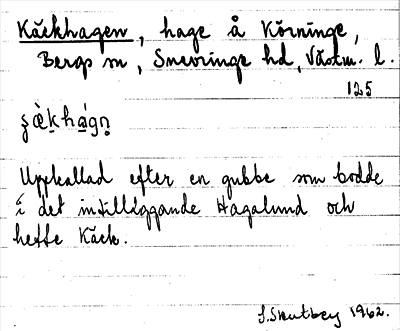 Käckhagen, hage å Körninge,
Bergs sn, Snevringe hd, Västm. l.
125
Uppkallad efter en gubbe som bodde
i det intilliggande Hagalund och
hette Käck.
1962.